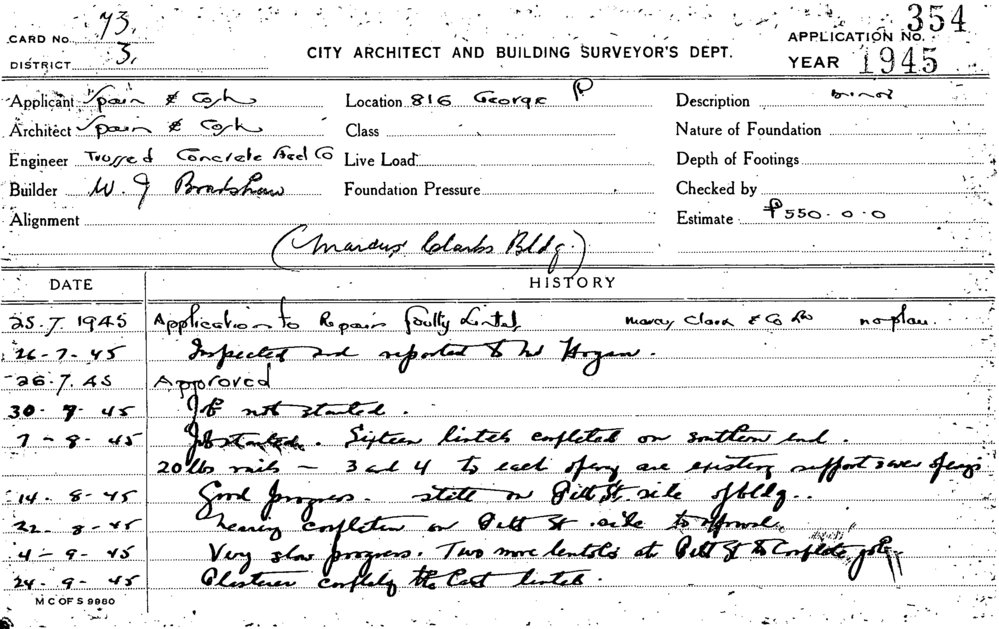 CARD NO. 73.
APPLICATION NO. 354
DISTRICT 3.
CITY ARCHITECT AND BUILDING SURVEYOR'S DEPT.
YEAR 1945
Applicant Spain & Cosh
Location 816 George
Description minor
Architect Spain & Cosh
Class
Nature of Foundation
Engineer Trussed Concrete Steel Co
Live Load
Depth of Footings
Builder W. J Bradshaw
Foundation Pressure
Checked by
Alignment
Estimate £550.0.0
(Marcus Clarks Bldg.)
DATE HISTORY
25.7.1945 Application to Repair faulty Lintels Marcus Clark & Co no plan.
26-7-45 Inspected and reported to Mr Hogan.
26.7.45 Approved
30-7-45 Job not started.
7-8-45 Job started. Sixteen lintels completed on southern end.
20 lbs rails - 3 and 4 to each opening are existing support over openings
14.8-45 Good progress. still on Pitt St. side of bldg..
22-8-45 nearing completion on Pitt St side
4-9-45 Very slow progress. Two more lintels at Pitt St to complete job.
24.9-45 Plasterer completing the last lintels.
M C OF S 9980